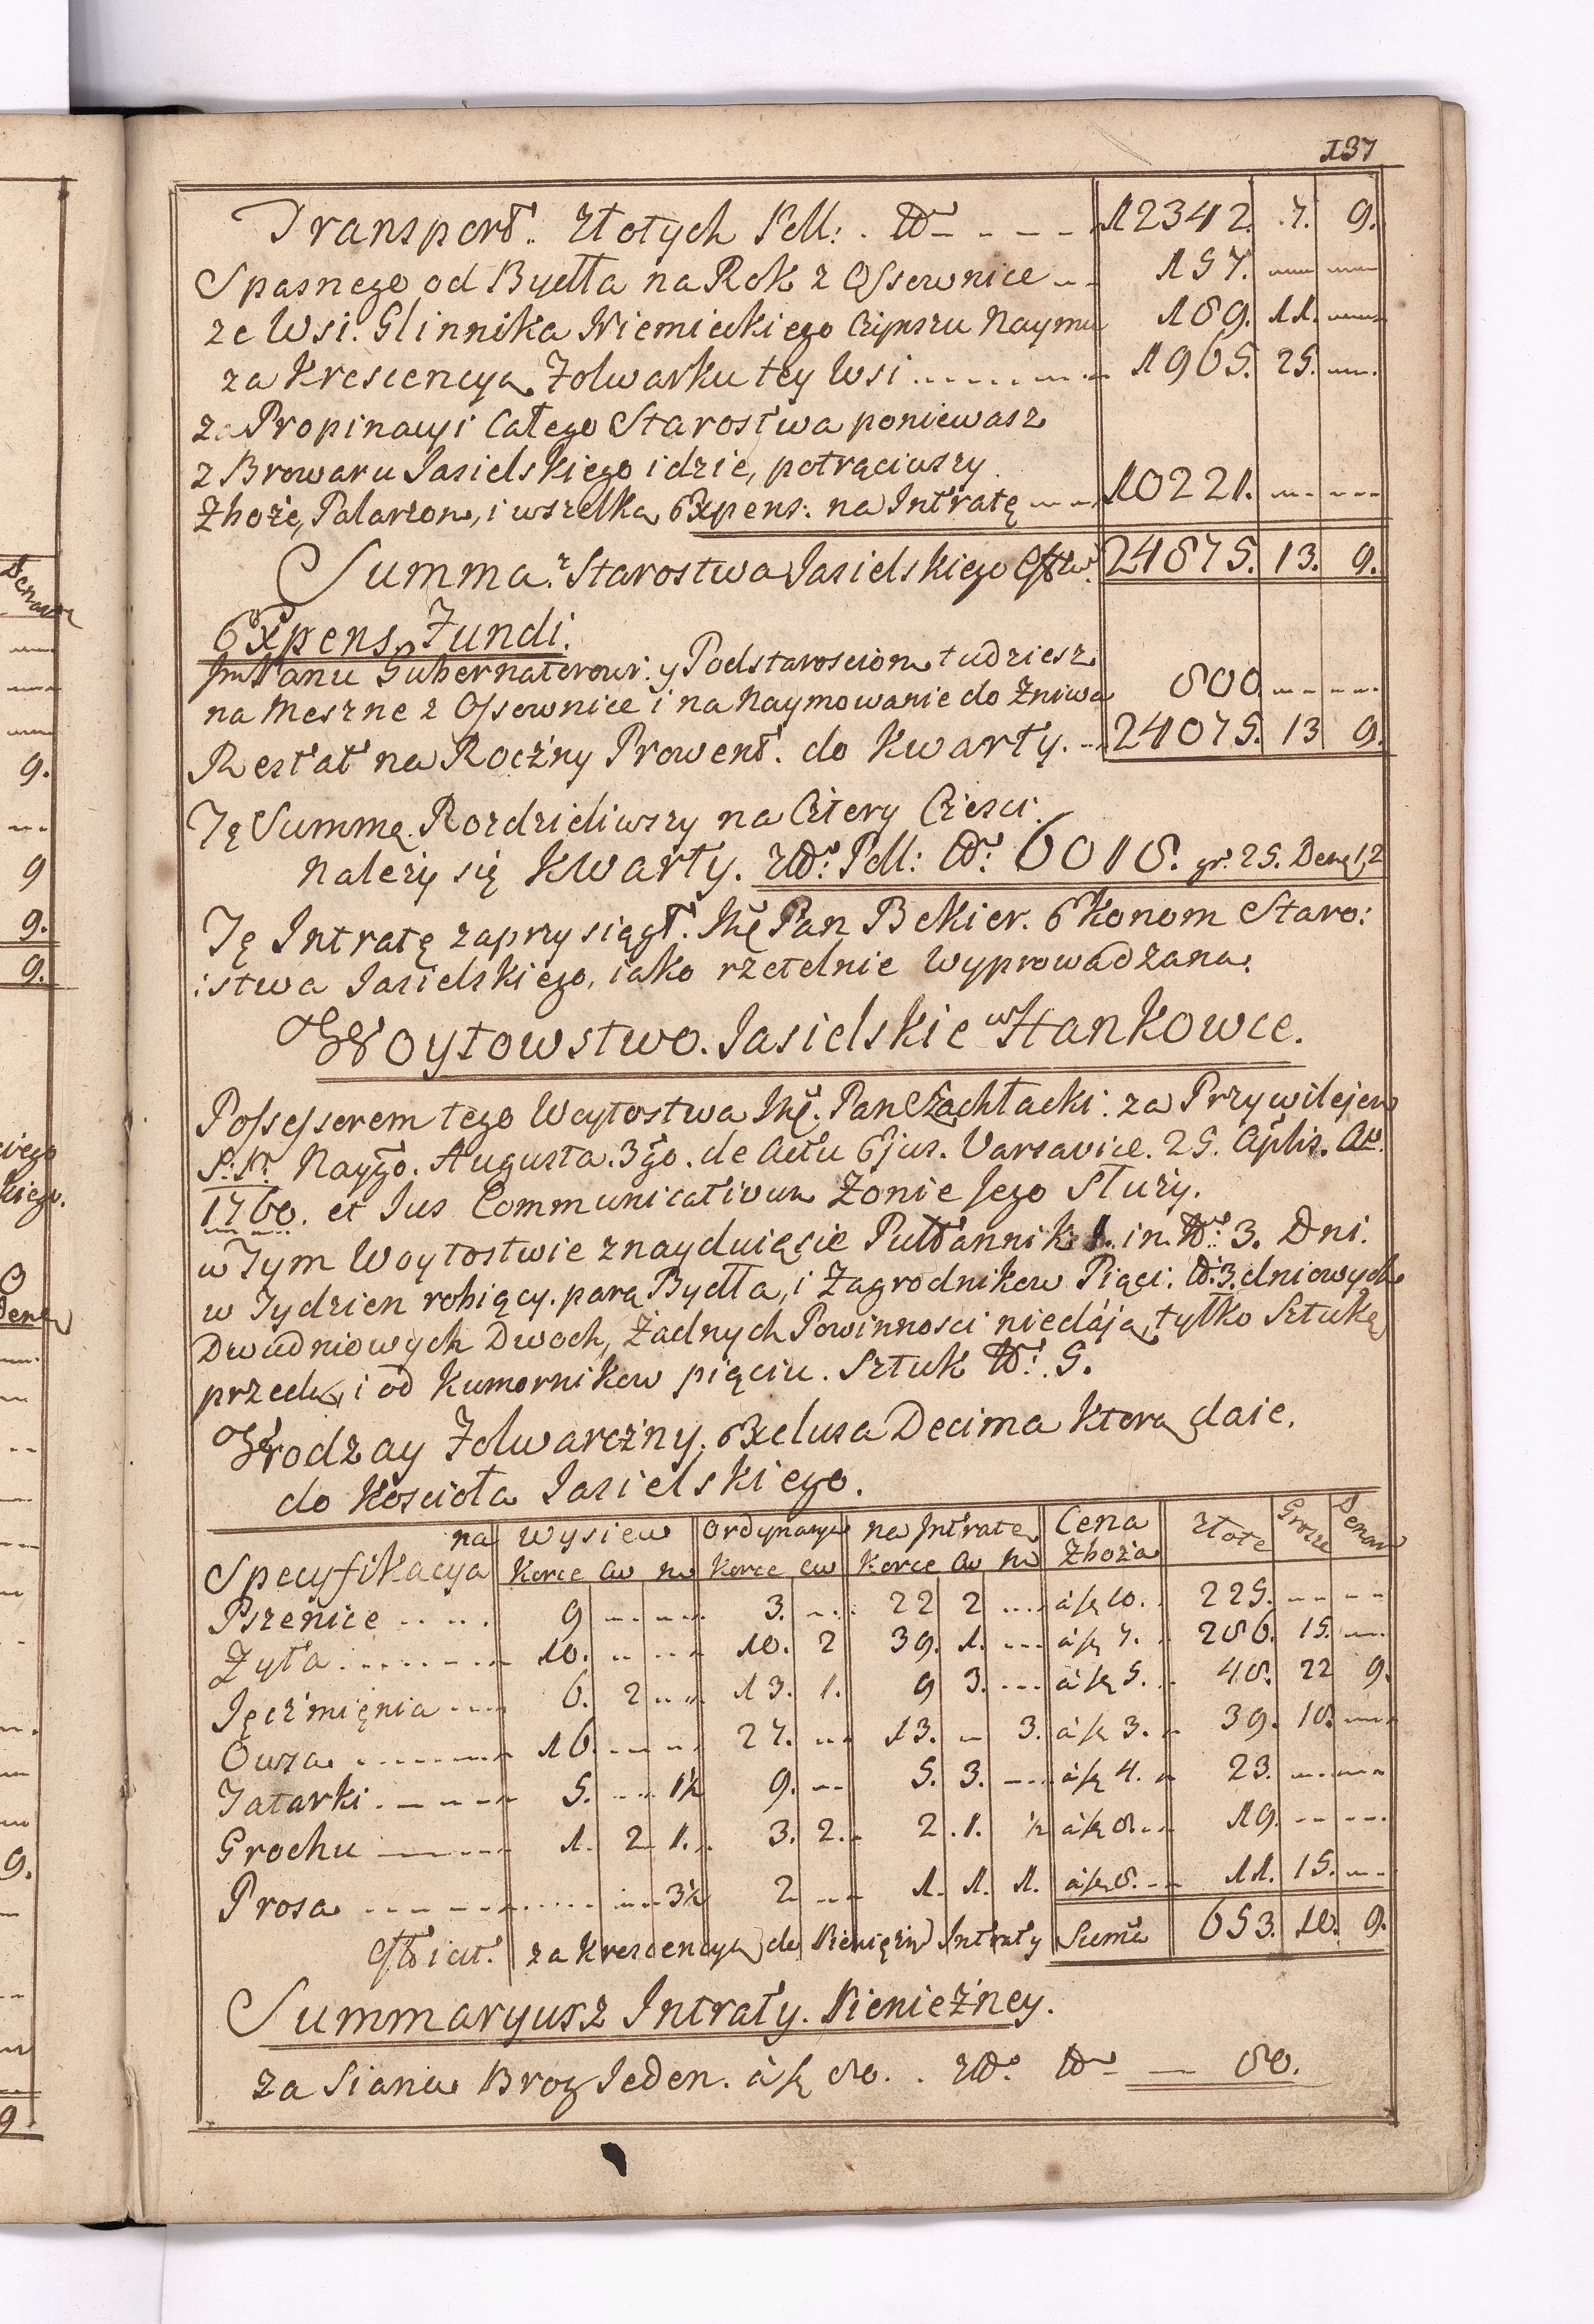 137
Transport. Złotych Poll: . Nro - - - - 12342. 7. 9.
Spasnego od Bydła na Rok z Ossownice -- 157. --- ---
ze Wsi. Glinnika Niemieckiego Czynszu Naymu 189. 11. ---
za Krescencyą Folwarku tey Wsi ......... 1965. 25. ---
za Propinacyi Całego Starostwa poniewasz
z Browaru Jasielskiego idzie, potrąciwszy
Zboże, Palarzom, i wszelką Expens: na Intratę --- 10221. --- ---
Summa. Starostwa Jasielskiego 24875. 13. 9.
Expens Fundi.
Jm Panu Gubernatorowi: y Podstarosciom tudziesz
na Meszne z Ossownice i na Naymowanie do Żniwa 800 -----
Restat na Roczny Prowent. do Kwarty. -- 24075. 13 9.
Tę Summę Rozdzieliwszy na Cztery Czesci.
Należy się Kwarty. Zło: Poll: Nro: 6018. gr: 25. Dena 12
Tę Intratę zaprzysiągł. Jmć Pan Bekier. Ekonom Staro:
:stwa Jasielskiego, iako rzetelnie wyprowadzana.
Woytowstwo. Jasielskie w Hankowce.
Possessorem tego Woytostwa Jmć. Pan Szachłacki: za Przywilejem
S: N: Nayyo. Augusta. 3go. de Actu Ejus. Varsavice. 25. Aplis. Ao.
1760. et Jus Communicativum Żonie Jego Służy.
w Tym Woytostwie znayduią sie Pułłannik 1. in Nro: 3. Dni.
w Tydzien robiący. parą Bydła, i Zagrodnikow Pięci: Nr: 3. dniowych
Dwudniowych Dwoch, Żadnych Powinnosci niedają, tylko Sztukę
przędą, i od Kumornikow pięciu. Sztuk Nro: 5.
Urodzay Folwarczny. Exclusa Decima Ktorą daie.
do Koscioła Jasielskiego.
Specyfikacya na Wysiew Ordynaryą na Intratę Cena Zboża Złote Grosze Denar
Korce Cw na Korce cw Korce Cw na
Pszenice ..... 9 --- --- 3. --- 22 2 --- á fl 10. 225. --- ---
Żyta ........ 10. --- --- 10. 2 39. 1. --- á fl 7. 286. 15. ---
Jęczmięnia .... 6. 2 --- 13. 1. 9 3. --- á fl 5. 48. 22 9.
Owsa ........ 16. --- --- 27. --- 13. - 3. á fl 3. 39. 18. ---
Tatarki ...... 5. --- 1½ 9. --- 5. 3. --- á fl 4. 23. --- ---
Grochu ------ 1. 2 1. 3. 2. 2. 1. ½ á fl 8. 19. --- ---
Prosa ........ --- --- 3½ 2 --- 1. 1. 1. á fl 8. 11. 15. ---
za Krescencyą do Pienięzny Intraty Suma 653. 10. 9.
Summaryusz Intraty. Pienieżney.
za Siana Brog Jeden. á fl 80. . Zło: Nro — 80.